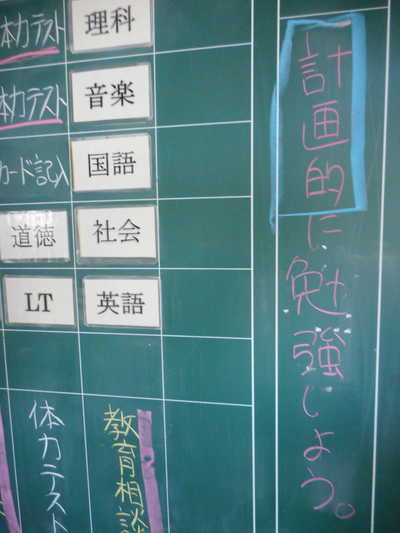 計画的に勉強しよう。
理科
音楽
国語
社会
英語
体力テスト
体力テスト
カード記入
道徳
LT
教育相談
体力テスト